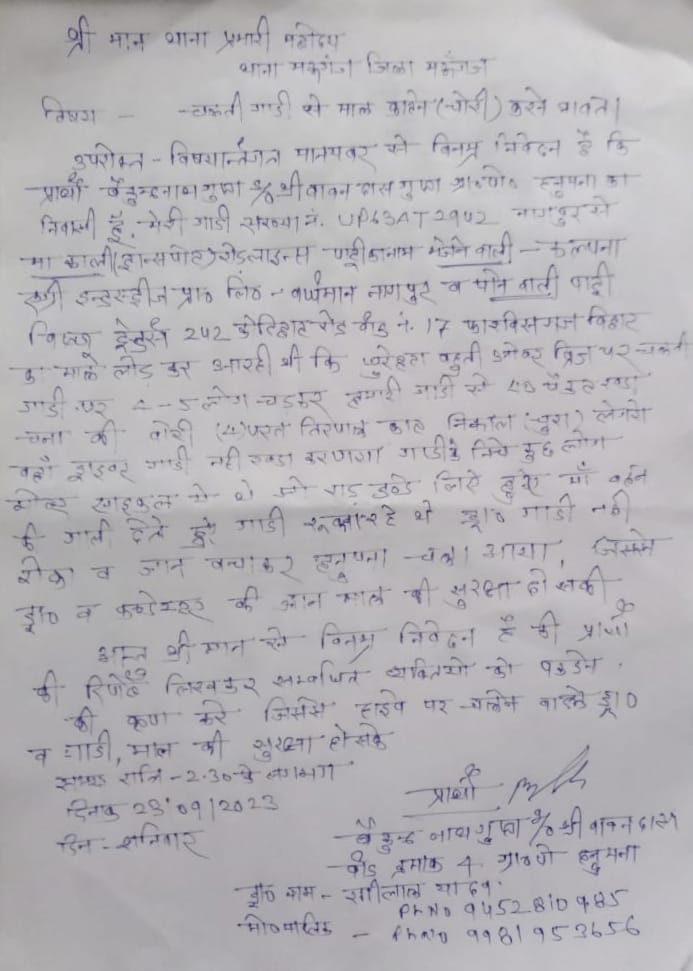 श्री मान थाना प्रभारी महोदय
थाना मऊगंज जिला मऊगंज
विषय - - चलती गाडी से माल काटने (चोरी) करने बावत।
उपरोक्त - विषयान्तर्गत मान्यवर से विनम्र निवेदन है कि
प्रार्थी बैकुन्ठनाथ गुप्ता S/o श्री बावन दास गुप्ता ग्रा०पो० हनुमना का
निवासी है, मेरी गाडी संख्या नं. UP63AT2942 नागपुर से
मा काली (ट्रान्सपोर्ट) रोडलाइन्स पार्टी का नाम भेजने वाली - कल्पना
एग्री इन्डस्ट्रीज प्रा० लि० - वर्धमान नागपुर व पाने वाली पार्टी
विष्णु ट्रेडर्स 242 वार्ड नं. 17 फारविसगंज विहार
का माल लोड कर आ रही थी कि बहुती ओवर ब्रिज पर चलती
गाडी पर 4-5 लोग चढकर हमारी गाडी से
चना की बोरी परत तिरपाल काट निकाल (चुरा) ले गये
वहाँ ड्राइवर गाडी नही खडा कर पाया गाडी के निचे कुछ लोग
मोटर साइकल से थे जो डण्डे लिऐ हुऐ माँ बहन
की गाली देते हुऐ गाडी रुकवा रहे थे ड्रा० गाडी नही
रोका व जान बचाकर हनुमना चला आया, जिससे
ड्रा० व कण्डेक्टर की जान माल की सुरक्षा हो सकी
अतः श्री मान से विनम्र निवेदन है की प्रार्थी
की रिपोर्ट लिखकर सम्बंधित व्यक्तियो को पकडने
की कृपा करे जिससे हाइवे पर चलने वाले ड्रा०
व गाडी, माल की सुरक्षा हो सके
समय रात्रि - 2.30 के लगभग
दिनाक 23/09/2023
दिन - शनिवार
प्रार्थी
बैकुन्ठ नाथ गुप्ता S/o श्री बावन दास
वार्ड क्रमांक 4 ग्रा० पो हनुमना
ड्रा० नाम - रंगीलाल यादव
Ph No 9452810985
मो० मालिक - Ph No 9981953656